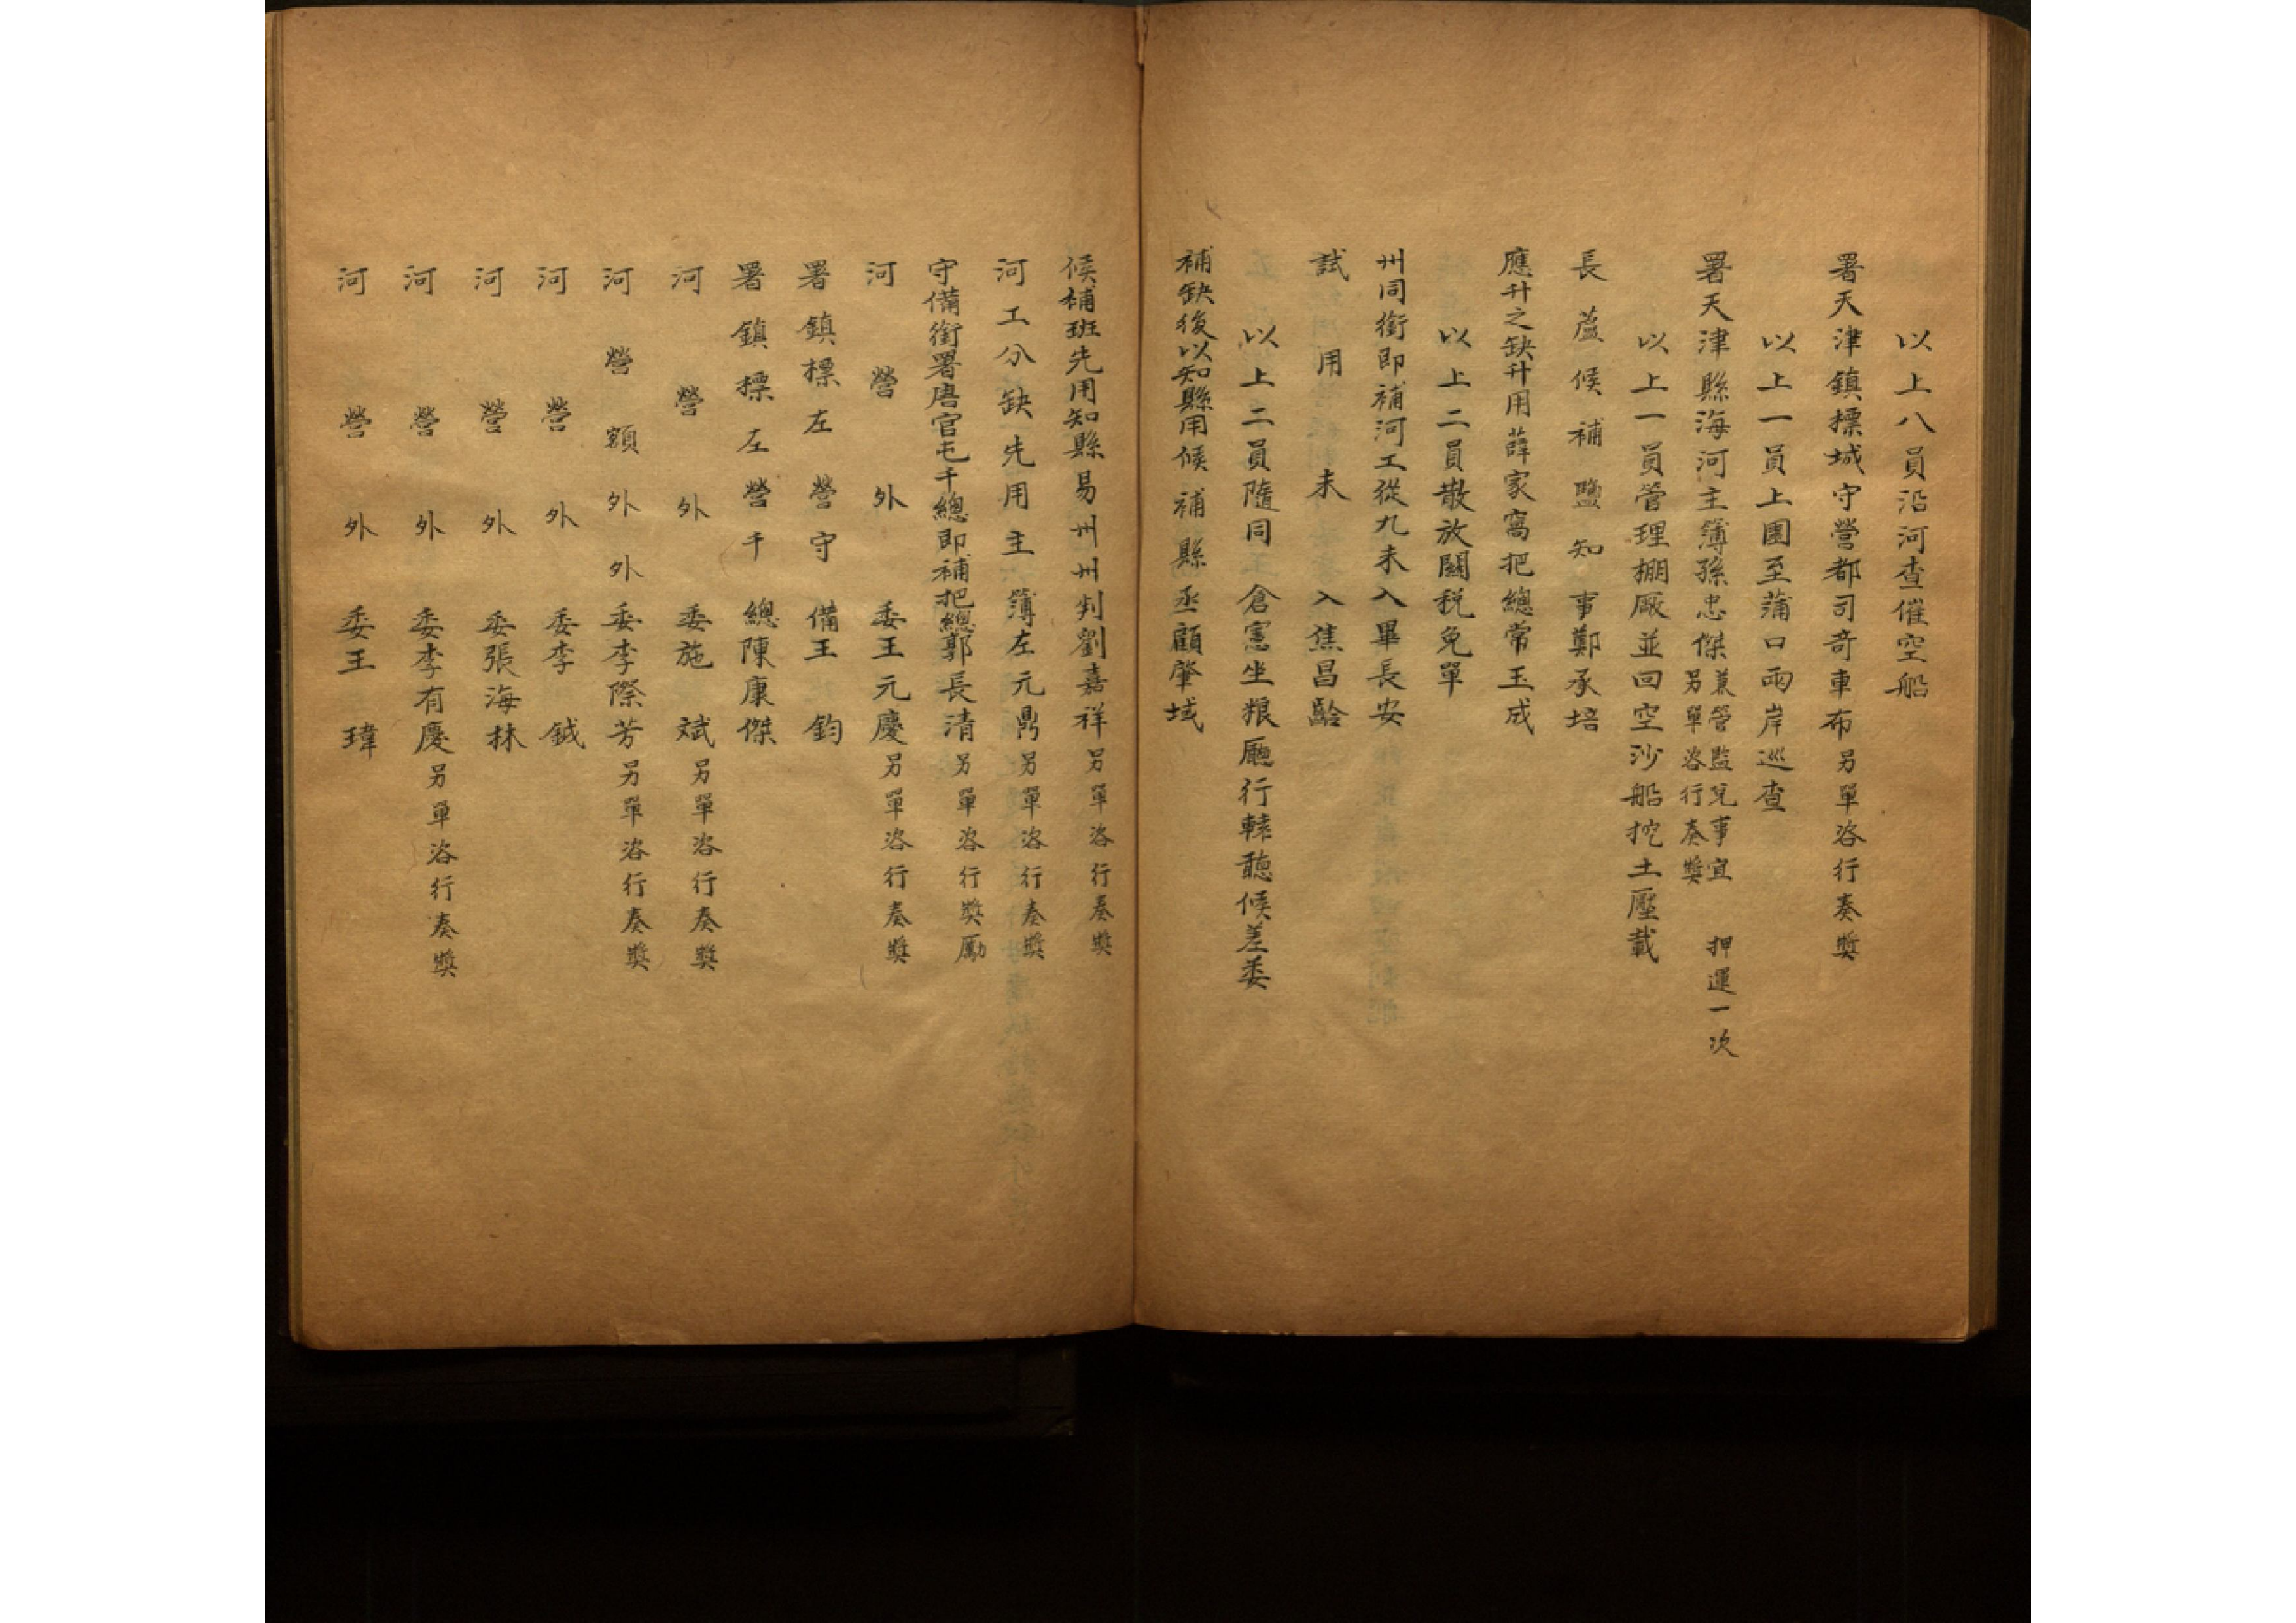 以上八員沿河查催空船
署天津鎮標城守營都司奇車布另單咨行奏奬
以上一員上園至蒲口兩岸巡查
署天津縣海河主簿孫忠傑兼管監兌事宜另單咨行奏奬 押運一次
以上一員管理棚廠並回空沙船挖土壓載
長蘆候補鹽知事鄭承培
應升之缺升用薛家窩把總常玉成
以上二員散放關税免單
州同銜即補河工從九未入畢長安
試用未入焦昌齡
以上二員隨同倉憲坐粮廳行轅聽候差委
補缺後以知縣用候補縣丞顧肇域
候補班先用知縣易州州判劉嘉祥另單咨行奏奬
河工分缺先用主簿左元鼎另單咨行奏奬
守備銜署唐官屯千總即補把總郭長清另單咨行奬勵
河營外委王元慶另單咨行奏奬
署鎮標左營守備王鈞
署鎮標左營千總陳康傑
河營外委施斌另單咨行奏奬
河營額外外委李際芳另單咨行奏奬
河營外委李鉞
河營外委張海林
河營外委李有慶另單咨行奏奬
河營外委王瑋